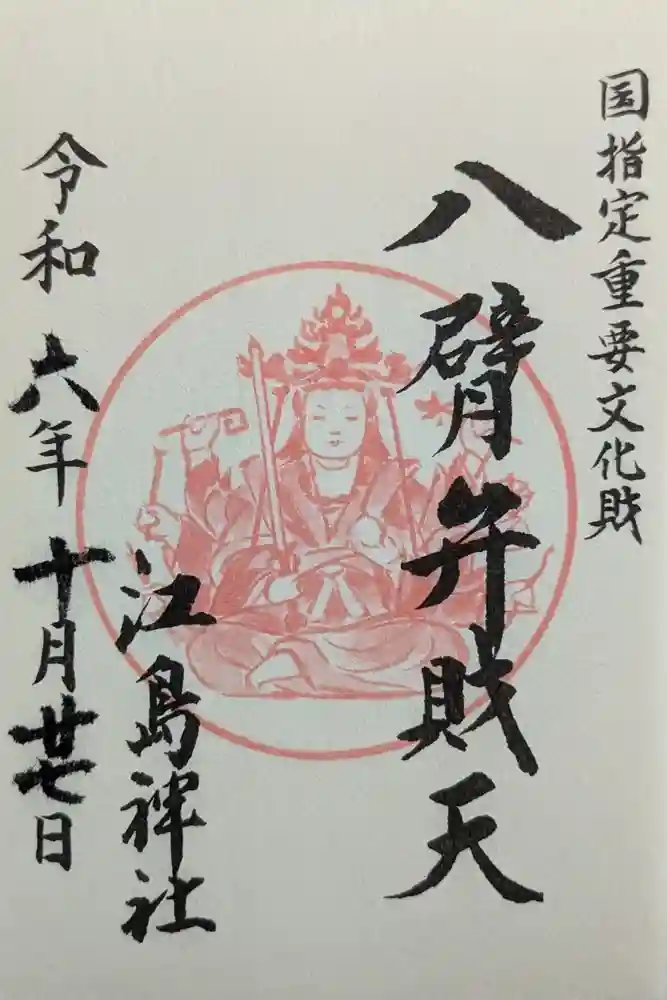 国指定重要文化財
八臂弁財天
江島神社
令和六年十月廿七日